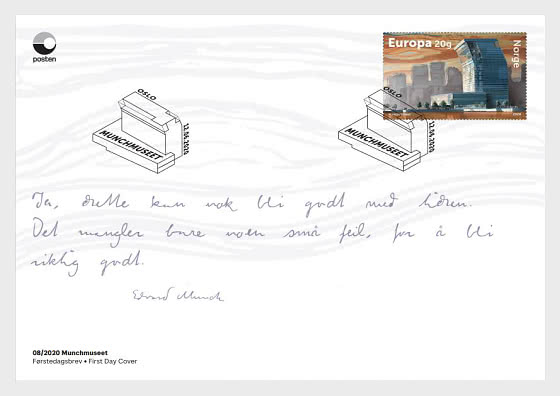 posten
Europa 20g
Norge
OSLO
MUNCHMUSEET
12.06.2020
OSLO
MUNCHMUSEET
12.06.2020
Ja, dette kan nok bli godt med tiden.
Det mangler bare noen små feil, for å bli
riktig godt.
Edvard Munch
08/2020 Munchmuseet
Førstedagsbrev • First Day Cover